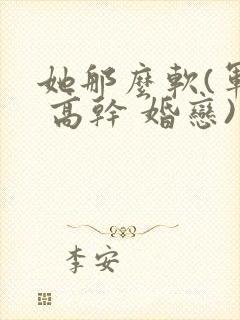 她那麼軟(軍
高幹 婚戀)
李安